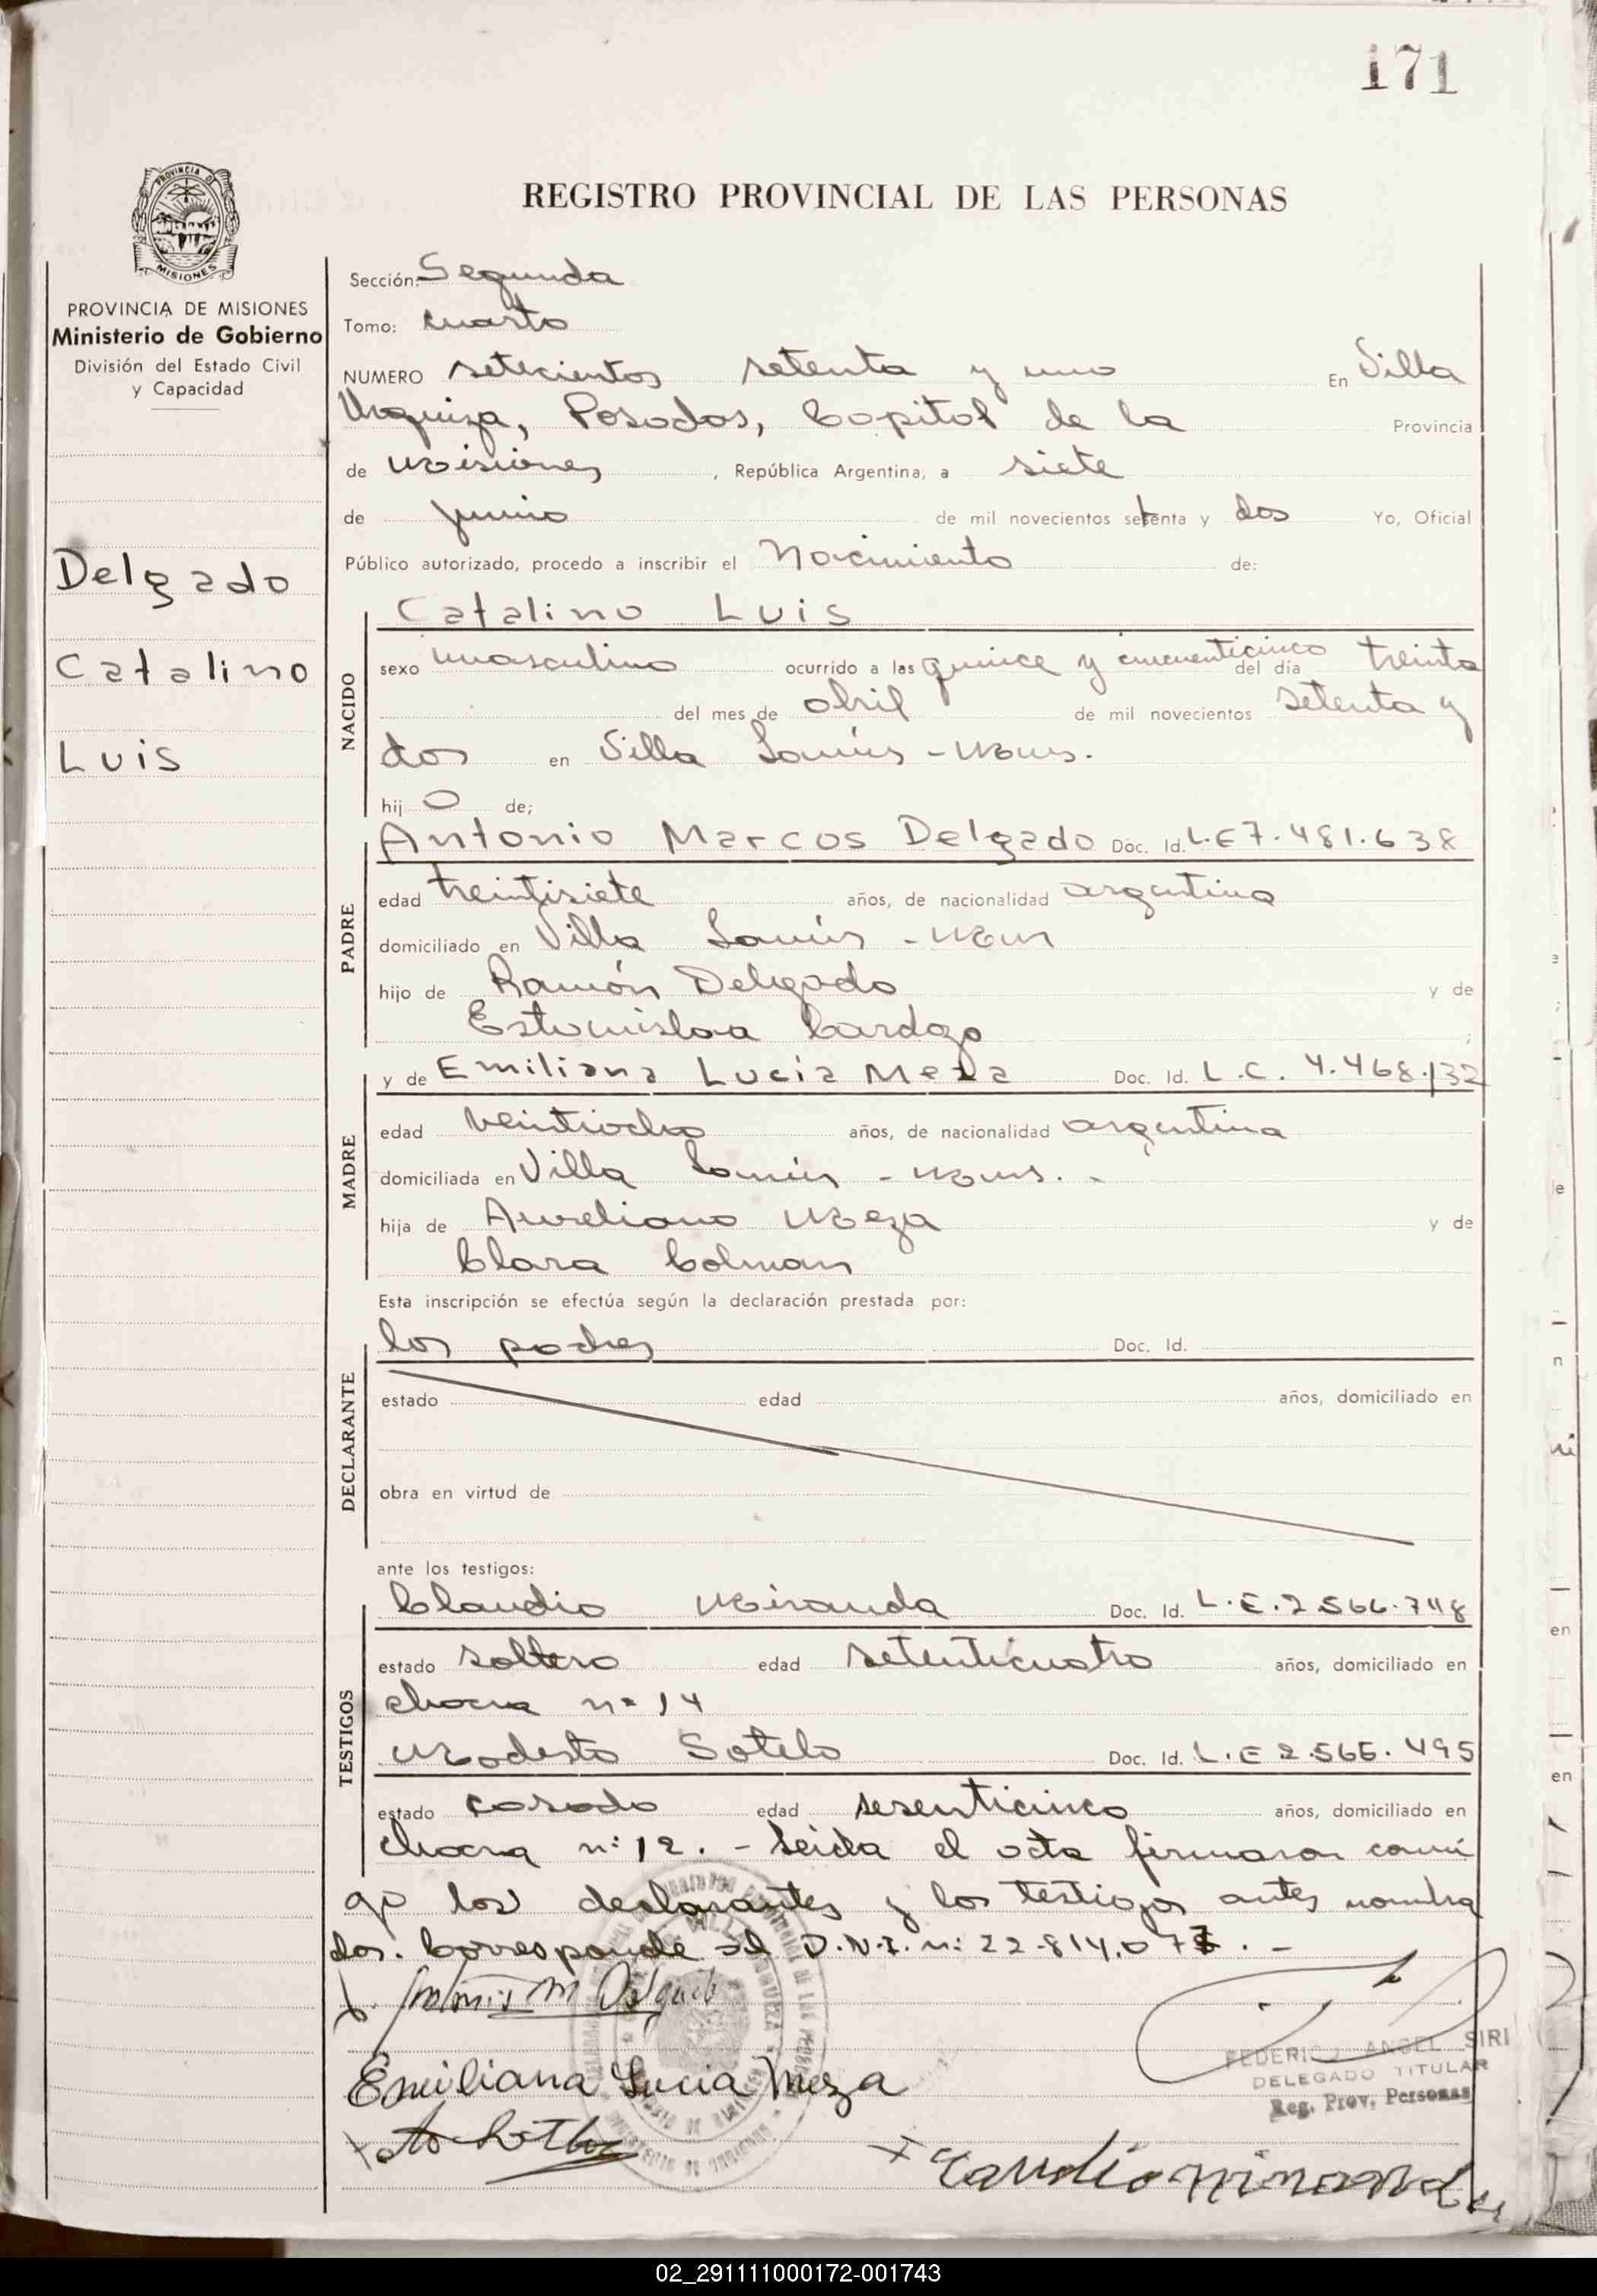 171
REGISTRO PROVINCIAL DE LAS PERSONAS
PROVINCIA DE MISIONES
Ministerio de Gobierno
División del Estado Civil
y Capacidad
Delgado
Catalino
Luis
Sección: Segunda
Tomo: cuarto
NUMERO setecientos setenta y uno En Villa
Urquiza, Posadas, Capital de la Provincia
de Misiones, República Argentina, a siete
de junio de mil novecientos setenta y dos Yo, Oficial
Público autorizado, procedo a inscribir el Nacimiento de:
NACIDO
Catalino Luis
sexo masculino ocurrido a las quince y cincuenticinco del día treinta
del mes de abril de mil novecientos setenta y
dos en Villa Lanús - Mnes.
hij o de;
PADRE
Antonio Marcos Delgado Doc. Id. L.E 7.481.638
edad treintisiete años, de nacionalidad argentina
domiciliado en Villa Lanús - Mnes
hijo de Ramón Delgado y de
Cardozo
MADRE
y de Emiliana Lucia Meza Doc. Id. L.C. 4.468.132
edad veintiocho años, de nacionalidad argentina
domiciliada en Villa Lanús - Mnes. -
hija de Aureliano Meza y de
Clara Colman
Esta inscripción se efectúa según la declaración prestada por:
DECLARANTE
los padres Doc. Id.
estado edad años, domiciliado en
obra en virtud de
ante los testigos:
TESTIGOS
Claudio Miranda Doc. Id. L.E.2.566.748
estado soltero edad setenticuatro años, domiciliado en
chacra nº 14
Modesto Sotelo Doc. Id. L.E 2.565.495
estado casado edad sesenticinco años, domiciliado en
chacra nº 12. - Leida el acta firmaron conmi
go los declarantes y los testigos antes nombra
dos. Corresponde al D.N.I. nº 22.814.07 . -
Antonio M Delgado
FEDERICO ANGEL SIRI
DELEGADO TITULAR
Reg. Prov. Personas
Emiliana Lucia Meza
02_291111000172-001743